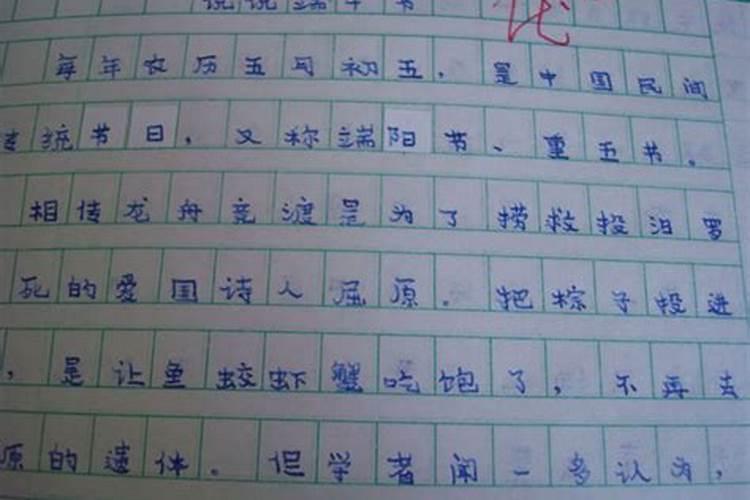 说说端午节
每年农历五月初五，是中国民间
统节日，又称端阳节、重五节。
相传龙舟竞渡是为了捞救投汨罗
死的爱国诗人屈原。把棕子投进
，是让鱼蛟虾蟹吃饱了，不再去
原的遗体。但学者闻一多认为，